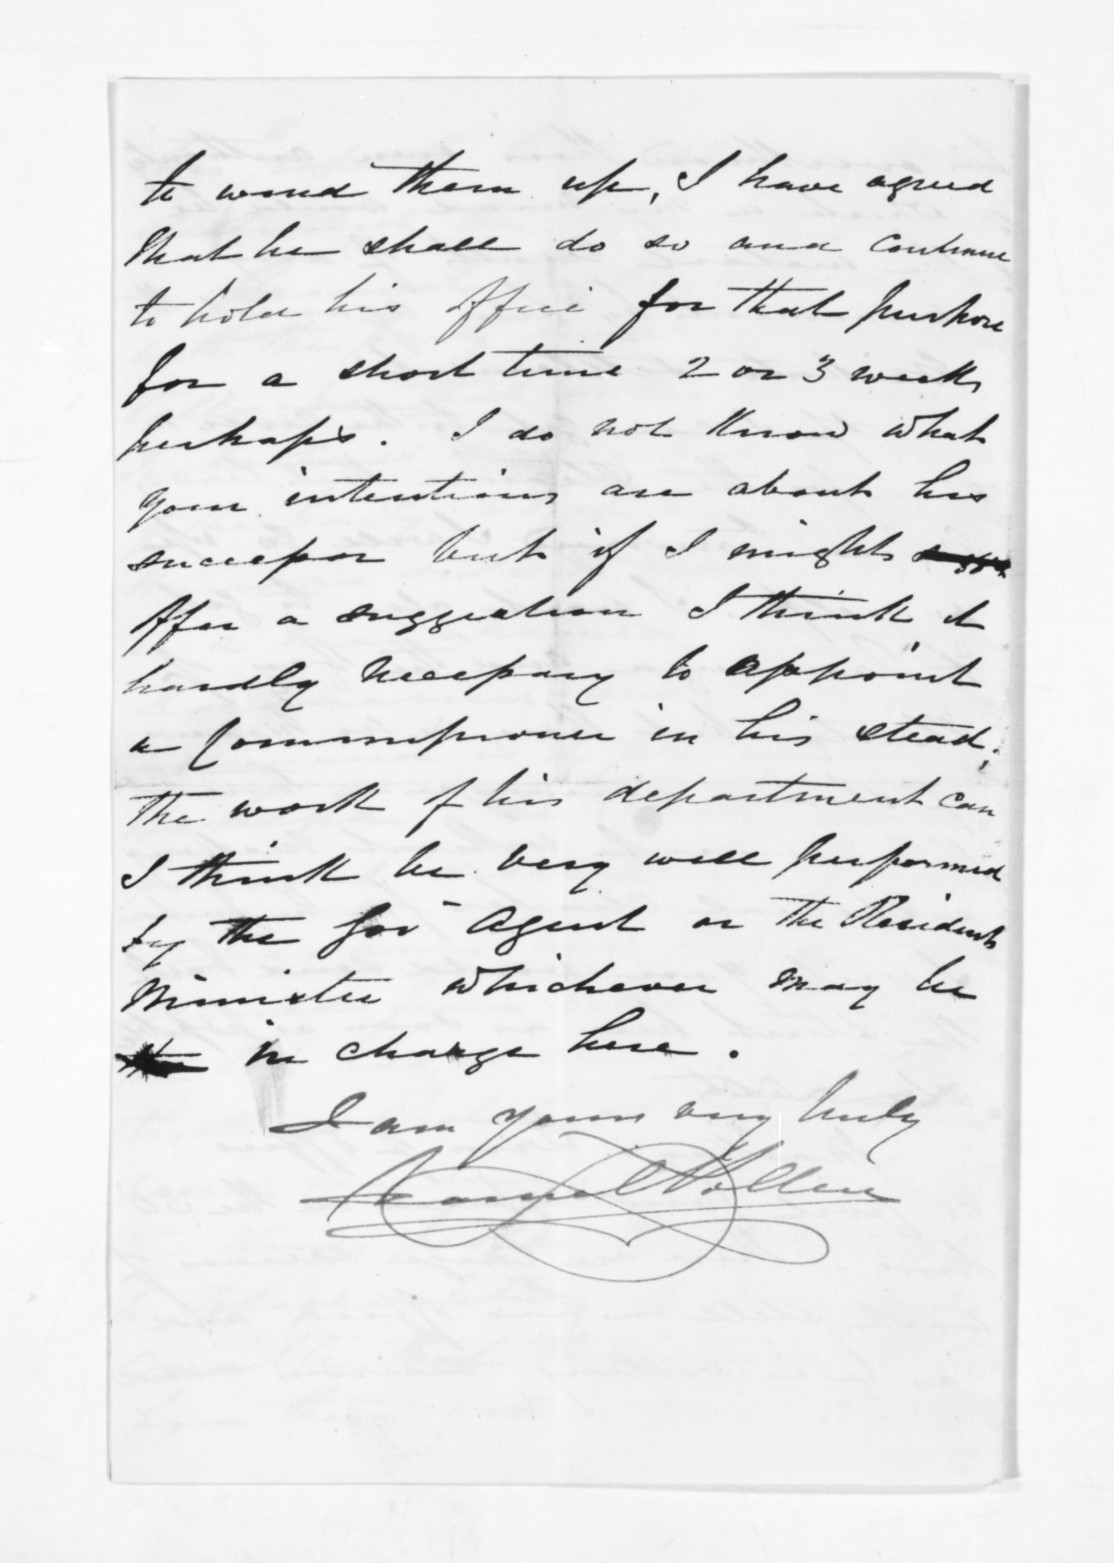 to wind them up, I have agreed
that he shall do so and continue
to hold his office for that purpose
for a short time 2 or 3 weeks
perhaps. I do not know what
your intentions are about his
successor but if I might
offer a suggestion I think it
hardly necessary to appoint
a Commissioner in his stead;
the work of his department can
I think be very well performed
by the Gov Agent or the Resident
Minister whichever may be
in charge here.
I am yours very truly
Daniel Pollen